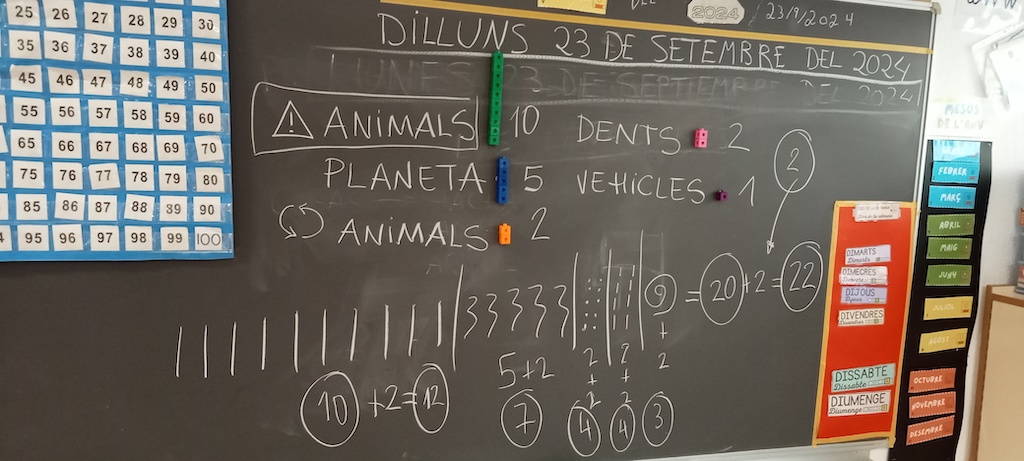 DEL
2024
23/9/2024
DILLUNS 23 DE SETEMBRE DEL 2024
LUNES 23 DE SEPTIEMBRE DEL 2024
ANIMALS 10
DENTS 2
2
PLANETA 5
VEHICLES 1
ANIMALS 2
9 = 20 + 2 = 22
+
2
10 + 2 = 12
5+2
7
2
+
2
4
2
+
2
4
3
25 26 27 28 29 30
35 36 37 38 39 40
45 46 47 48 49 50
55 56 57 58 59 60
65 66 67 68 69 70
75 76 77 78 79 80
85 86 87 88 89 90
95 96 97 98 99 100
DIMARTS
Dimarts
DIMECRES
Dimecres
DIJOUS
Dijous
DIVENDRES
Divendres
DISSABTE
Dissabte
DIUMENGE
Diumenge
MESOS
DE L'ANY
FEBRER
MARÇ
ABRIL
MAIG
JUNY
JULIOL
AGOST
OCTUBRE
NOVEMBRE
DESEMBRE